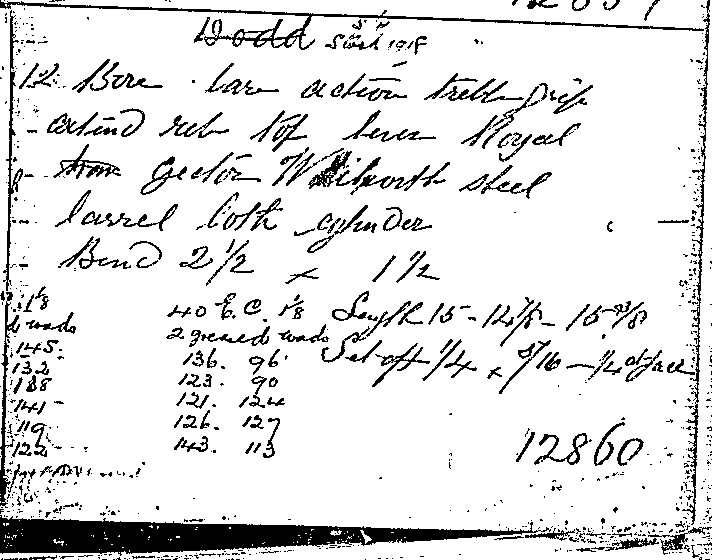 Dodd Stock 1915
12 Bore bar action treble grip
extend reb top lever Royal
Ejector Whitworth steel
barrel both cylinder
Bend 2 1/2 x 1 1/2
1 1/8 40 E.C. 1 1/8 Length 15 - 14 7/8 - 15 3/8
wads 2 greased wads
145. 136. 96 Set off 1/4 x 5/16 - 1/4 at face
132 123. 90
138 121. 124
141 126. 127
119 143. 113
122
12860